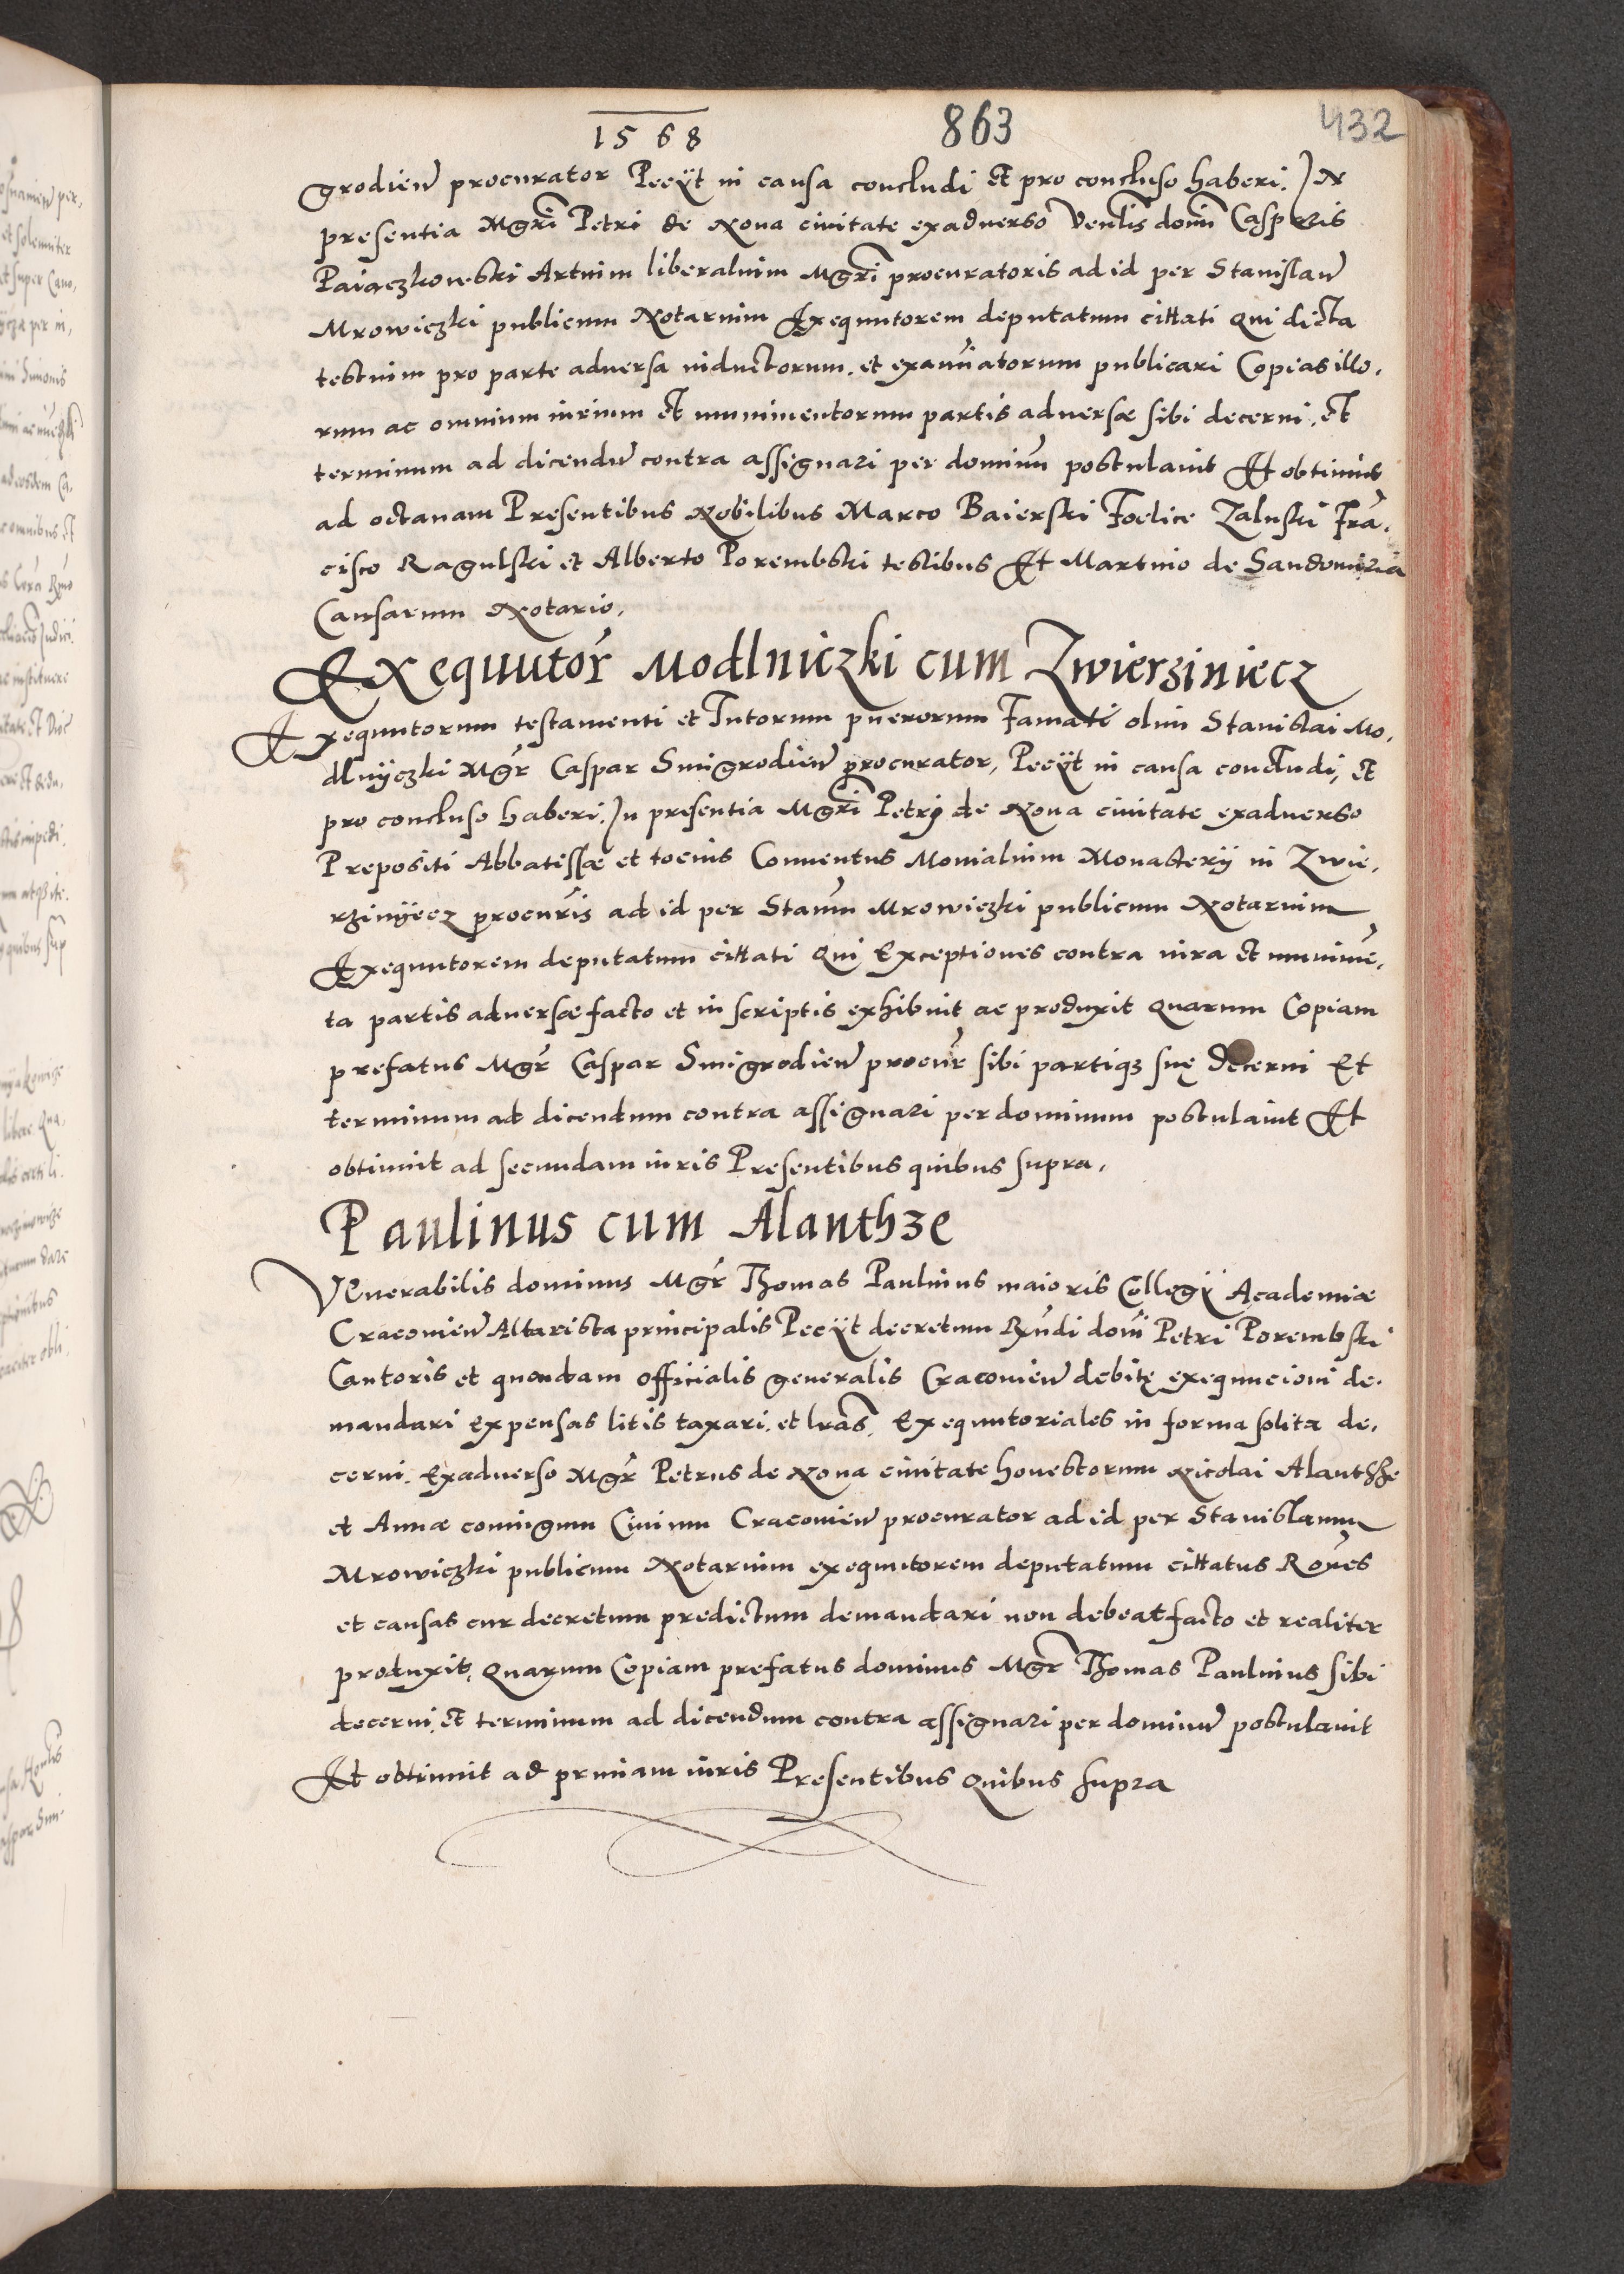 1568 863 432
grodieñ procurator Pecijt in causa concludi et pro concluso haberi. IN
presentia Mgri Petri de Nova civitate exadverso Venlis domi Casparis
Paiaczkowski Artium liberalium Mgri procuratoris ad id per Stanislaũ
Mrowiczki publicum Notarium Exequutorem deputatum cittati Qui dicta
testium pro parte adversa inductorum. et examiatorum publicari Copias illo,
rum ac omnium iurium et munimentorum partis adversæ sibi decerni. et
terminum ad dicendũ contra assignari per dominũ postulavit Et obtinuit
ad octavam Presentibus Nobilibus Marco Baierski Foelice Zaluski Frã,
cisco Ragulski et Alberto Porembski testibus Et Martino de Sandomiria
Causarum Notario.
Exequutor̃ Modlniczki cum Zwierziniecz
Exequutorum testamenti et Tutorum puerorum Famati olim Stanislai Mo,
dlnyczki Mgr Caspar Smigrodieñ procurator, Pecijt in causa concludi, et
pro concluso haberi. In presentia Mgri Petri de Nova civitate exadverso
Prepositi Abbatissæ et tocius Conventus Monialium Monasterij in Zwie,
rzinyecz procuris ad id per Stanum Mrowiczki publicum Notarium
Exequutorem deputatum cittati Qui Exceptiones contra iura et munimẽ,
ta partis adversæ facto et in scriptis exhibuit ac produxit Quarum Copiam
prefatus Mgr Caspar Smigrodieñ procur sibi partiq3 suę decerni Et
terminum ad dicendum contra assignari per dominum postulavit Et
obtinuit ad secundam iuris Presentibus quibus supra.
Paulinus cum Alanthze
VEnerabilis dominus Mgr Thomas Paulinus maioris Collegij Academiæ
Cracovieñ Altarista principalis Pecijt decretum Rñdi domi Petri Porembski
Cantoris et quondam officialis generalis Cracovieñ debitę exequucioni de,
mandari Expensas litis taxari. et lras. Exequutoriales in forma solita de,
cerni. Exadverso Mgr Petrus de Nova civitate honestorum Nicolai Alanthze
et Annæ coniugum Civium Cracovieñ procurator ad id per Stanislaum
Mrowiczki publicum Notarium exequutorem deputatum cittatus Rones
et causas cur decretum predictum demandari non debeat facto et realiter
produxit. Quarum Copiam prefatus dominus Mgr Thomas Paulinus sibi
decerni. et terminum ad dicendum contra assignari per dominũ postulavit
Et obtinuit ad primam iuris Presentibus Quibus supra